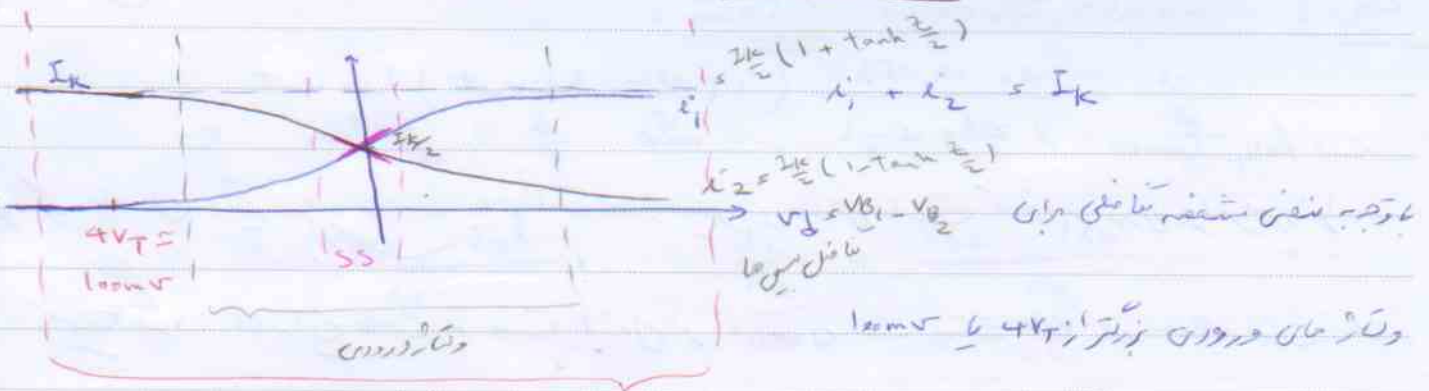 I_K
i_1 = I_K/2 (1 + tanh z/2)
i_1 + i_2 = I_K
I_K/2
i_2 = I_K/2 (1 - tanh z/2)
v_d = v_B1 - v_B2
با توجه به منحنی مشخصه تفاضلی برای
تفاضل بیس ها
4V_T =
100mv
SS
ولتاژ ورودی
ولتاژ های ورودی بزرگتر از 4V_T یا 100mv